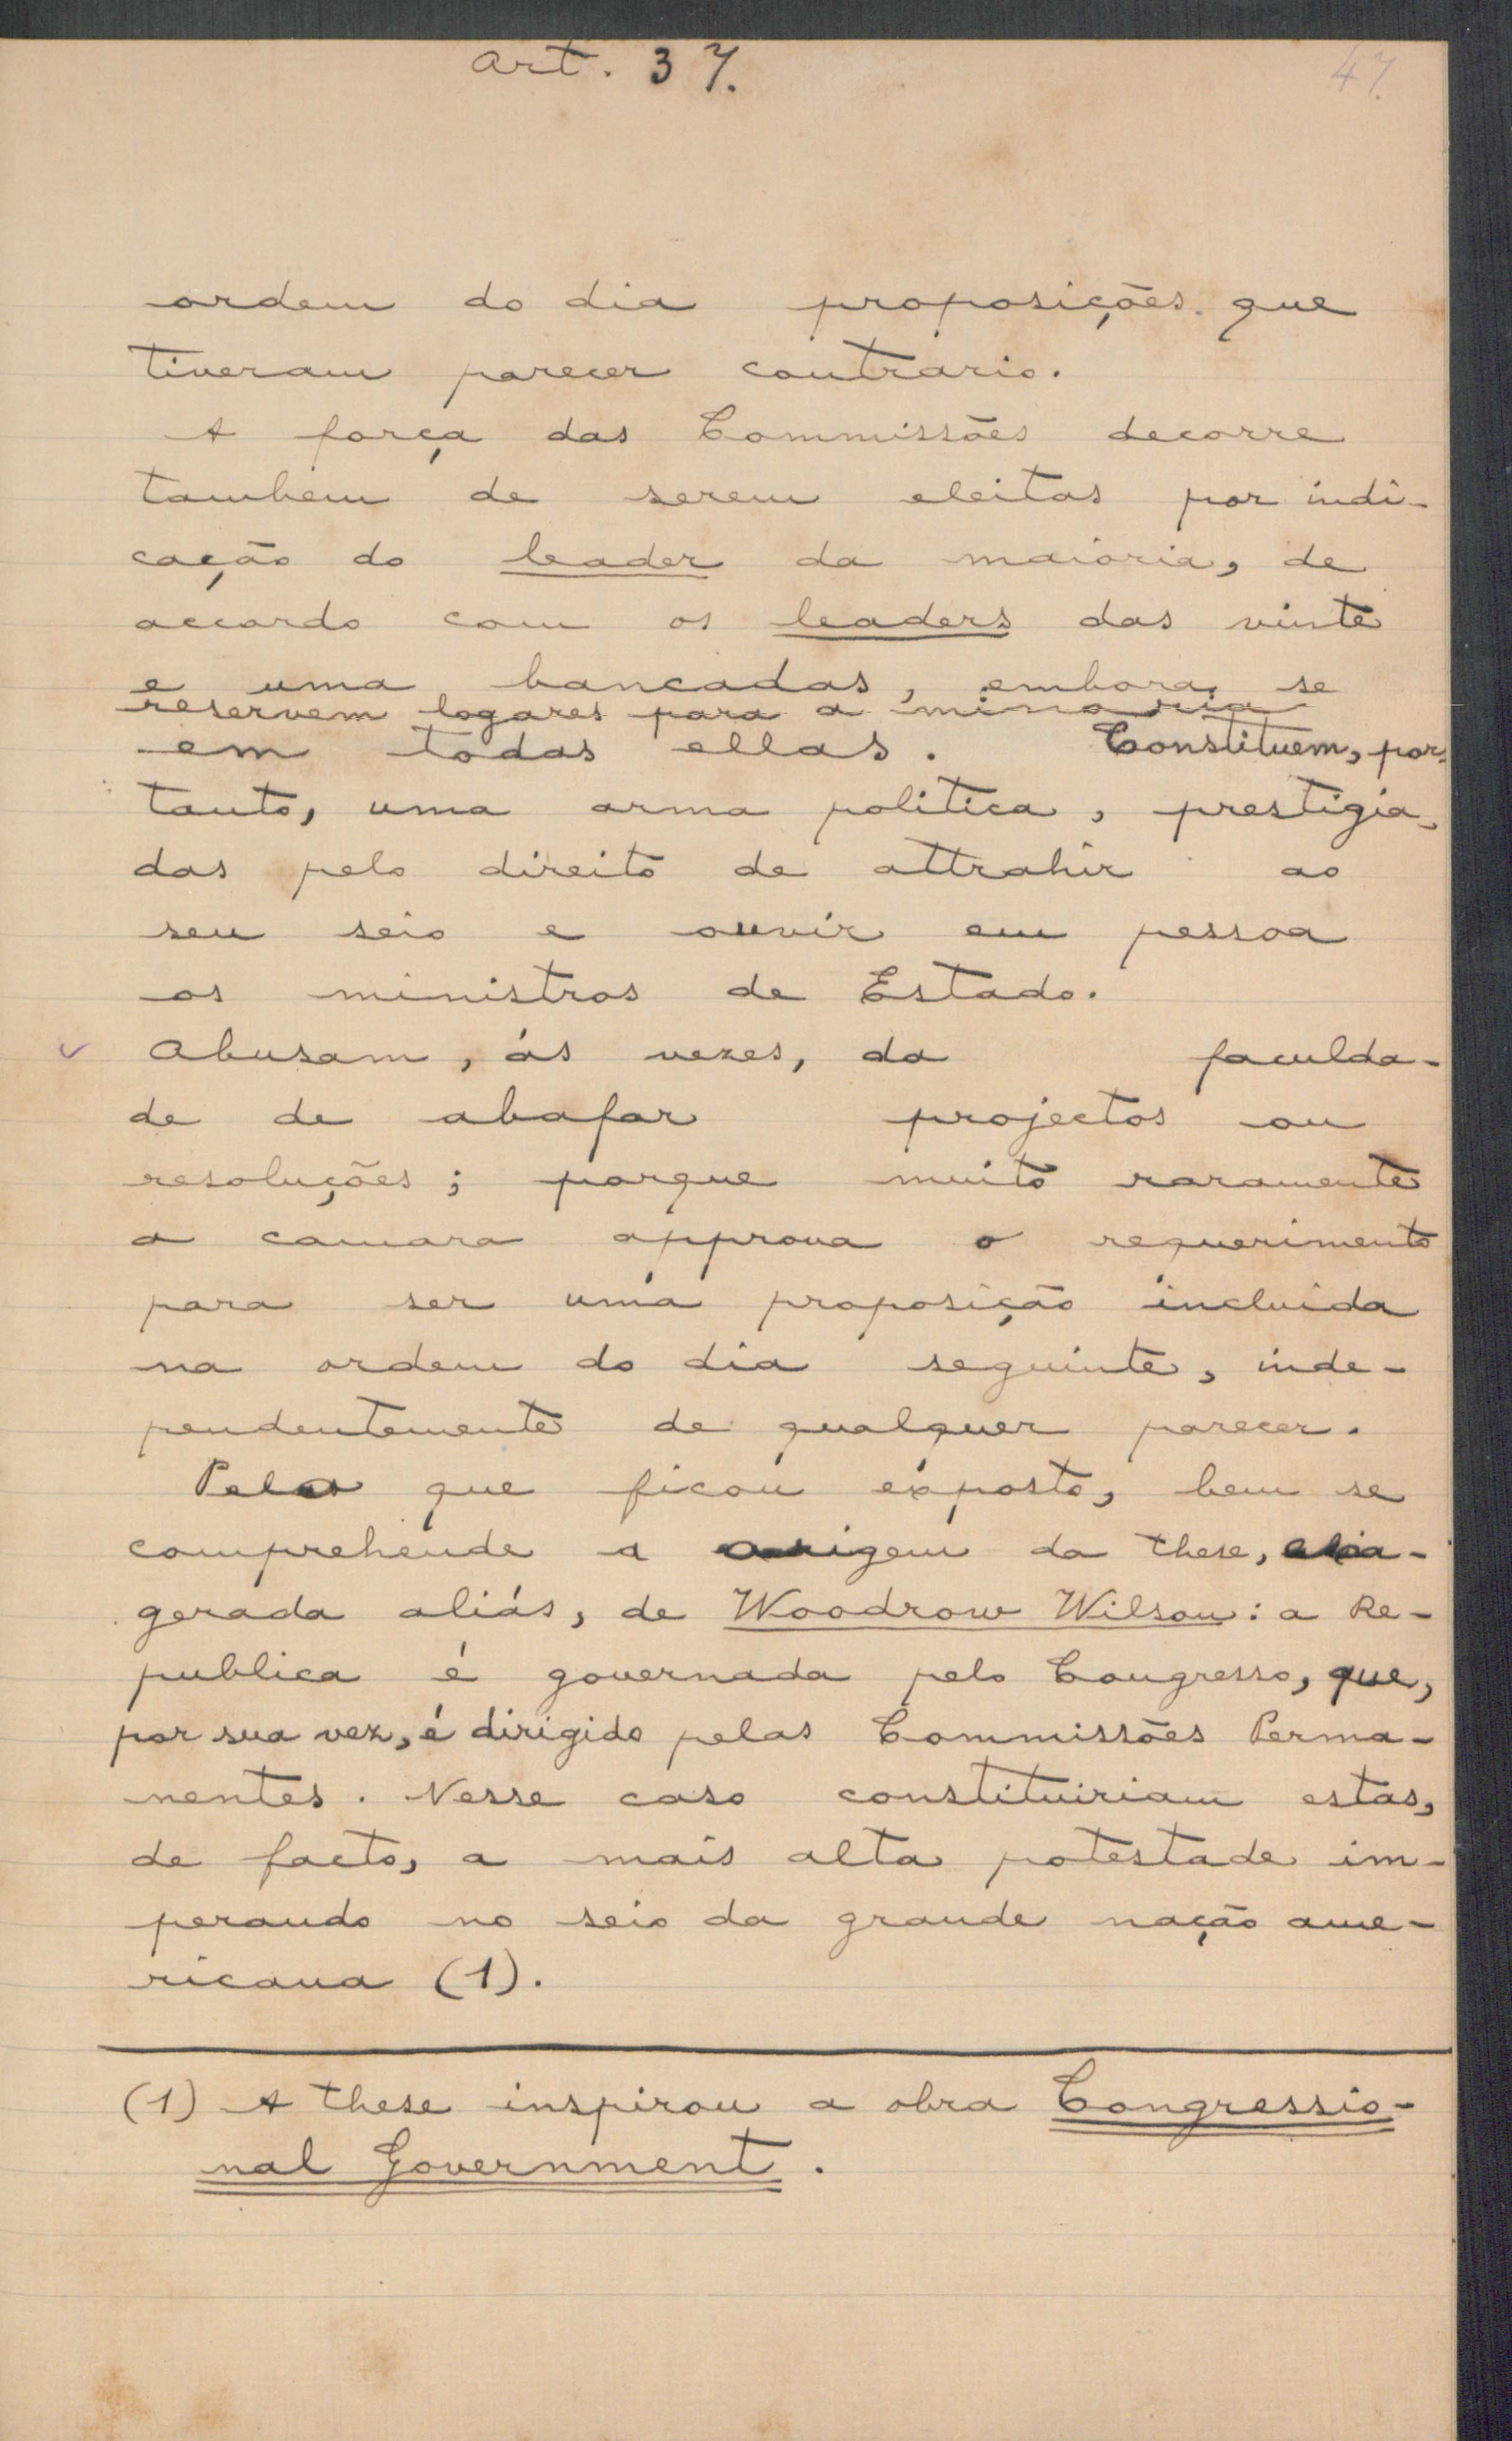 Art. 37.
47.
ordem do dia proposições que
tiveram parecer contrario.
A força das Commissões decorre
tambem de serem eleitas por indi-
cação do leader da maioria, de
accordo com os leaders das vinte
e uma bancadas, embora se
reservem logares para a minoria
em todas ellas. Constituem, por-
tanto, uma arma politica, prestigia-
das pelo direito de attrahir ao
seu seio e ouvir em pessoa
os ministros de Estado.
Abusam, ás vezes, da faculda-
de de abafar projectos ou
resoluções; porque muito raramente
a camara approva o requerimento
para ser uma proposição incluida
na ordem do dia seguinte, inde-
pendentemente de qualquer parecer.
Pelo que ficou exposto, bem se
comprehende a origem da these, exa-
gerada aliás, de Woodrow Wilson: a Re-
publica é governada pelo Congresso, que,
por sua vez, é dirigido pelas Commissões Perma-
nentes. Nesse caso constituiriam estas,
de facto, a mais alta potestade im-
perando no seio da grande nação ame-
ricana (1).
(1) A these inspirou a obra Congressio-
nal Government.